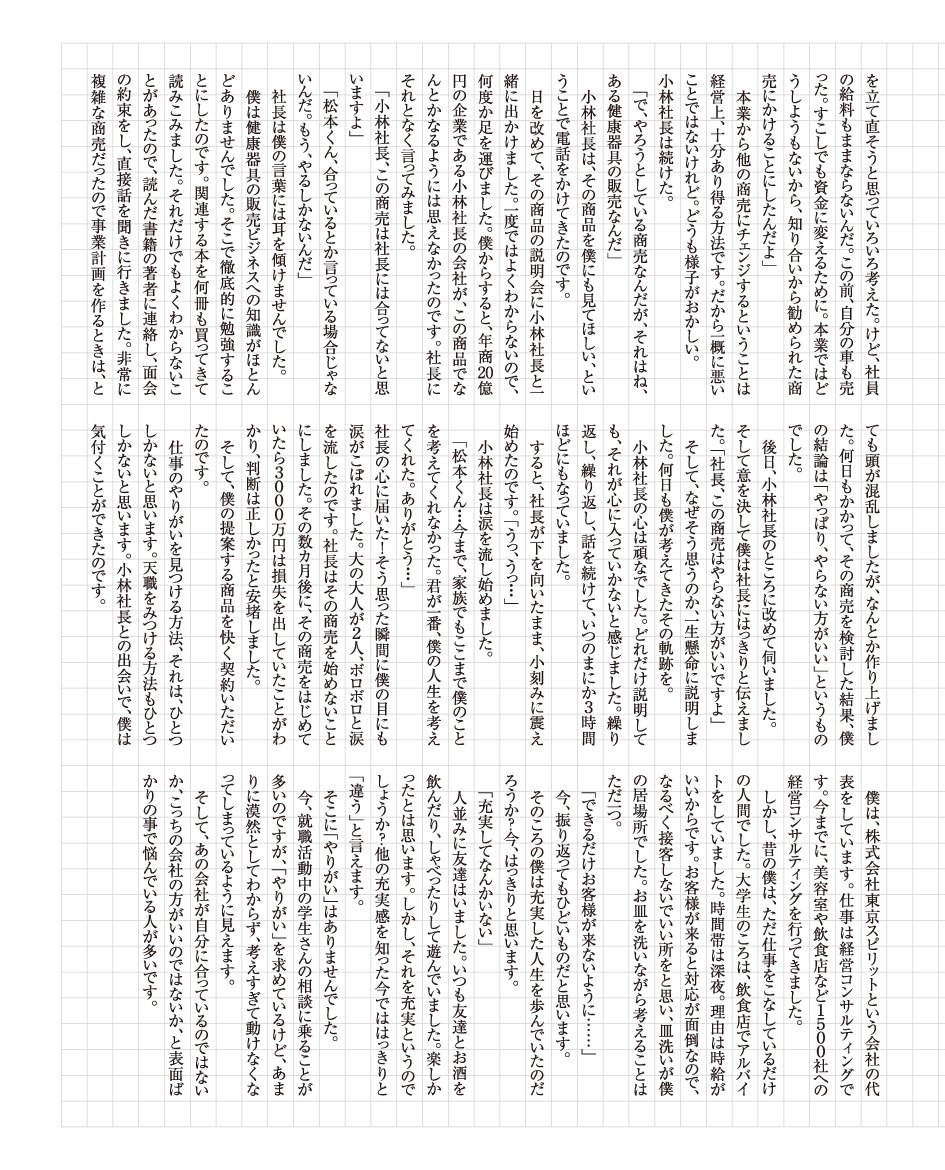 を立て直そうと思っていろいろ考えた。けど、社員
の給料もままならないんだ。この前、自分の車も売
った。すこしでも資金に変えるために。本業ではど
うしようもないから、知り合いから勧められた商
売にかけることにしたんだよ」
本業から他の商売にチェンジするということは
経営上、十分あり得る方法です。だから一概に悪い
ことではないけれど。どうも様子がおかしい。
小林社長は続けた。
「で、やろうとしている商売なんだが、それはね、
ある健康器具の販売なんだ」
小林社長は、その商品を僕にも見てほしい、とい
うことで電話をかけてきたのです。
日を改めて、その商品の説明会に小林社長と一
緒に出かけました。一度ではよくわからないので、
何度か足を運びました。僕からすると、年商20億
円の企業である小林社長の会社が、この商品でな
んとかなるようには思えなかったのです。社長に
それとなく言ってみました。
「小林社長、この商売は社長には合ってないと思
いますよ」
「松本くん、合っているとか言っている場合じゃな
いんだ。もう、やるしかないんだ」
社長は僕の言葉には耳を傾けませんでした。
僕は健康器具の販売ビジネスへの知識がほとん
どありませんでした。そこで徹底的に勉強するこ
とにしたのです。関連する本を何冊も買ってきて
読みこみました。それだけでもよくわからないこ
とがあったので、読んだ書籍の著者に連絡し、面会
の約束をし、直接話を聞きに行きました。非常に
複雑な商売だったので事業計画を作るときは、と
ても頭が混乱しましたが、なんとか作り上げまし
た。何日もかかって、その商売を検討した結果、僕
の結論は「やっぱり、やらない方がいい」というもの
でした。
後日、小林社長のところに改めて伺いました。
そして意を決して僕は社長にはっきりと伝えまし
た。「社長、この商売はやらない方がいいですよ」
そして、なぜそう思うのか、一生懸命に説明しま
した。何日も僕が考えてきたその軌跡を。
小林社長の心は頑なでした。どれだけ説明して
も、それが心に入っていかないと感じました。繰り
返し、繰り返し、話を続けて、いつのまにか3時間
ほどにもなっていました。
すると、社長が下を向いたまま、小刻みに震え
始めたのです。「うっ、うっ…」
小林社長は涙を流し始めました。
「松本くん…今まで、家族でもここまで僕のこと
を考えてくれなかった。君が一番、僕の人生を考え
てくれた。ありがとう…」
社長の心に届いた！そう思った瞬間に僕の目にも
涙がこぼれました。大の大人が2人、ボロボロと涙
を流したのです。社長はその商売を始めないこと
にしました。その数カ月後に、その商売をはじめて
いたら3000万円は損失を出していたことがわ
かり、判断は正しかったと安堵しました。
そして、僕の提案する商品を快く契約いただい
たのです。
仕事のやりがいを見つける方法、それは、ひとつ
しかないと思います。天職をみつける方法もひとつ
しかないと思います。小林社長との出会いで、僕は
気付くことができたのです。
僕は、株式会社東京スピリットという会社の代
表をしています。仕事は経営コンサルティングで
す。今までに、美容室や飲食店など1500社への
経営コンサルティングを行ってきました。
しかし、昔の僕は、ただ仕事をこなしているだけ
の人間でした。大学生のころは、飲食店でアルバイ
トをしていました。時間帯は深夜。理由は時給が
いいからです。お客様が来ると対応が面倒なので、
なるべく接客しないでいい所をと思い、皿洗いが僕
の居場所でした。お皿を洗いながら考えることは
ただ一つ。
「できるだけお客様が来ないように……」
今、振り返ってもひどいものだと思います。
そのころの僕は充実した人生を歩んでいたのだ
ろうか？今、はっきりと思います。
「充実してなんかいない」
人並みに友達はいました。いつも友達とお酒を
飲んだり、しゃべったりして遊んでいました。楽しか
ったとは思います。しかし、それを充実というので
しょうか？他の充実感を知った今でははっきりと
「違う」と言えます。
そこに「やりがい」はありませんでした。
今、就職活動中の学生さんの相談に乗ることが
多いのですが、「やりがい」を求めているけど、あま
りに漠然としてわからず、考えすぎて動けなくな
ってしまっているように見えます。
そして、あの会社が自分に合っているのではない
か、こっちの会社の方がいいのではないか、と表面ば
かりの事で悩んでいる人が多いです。